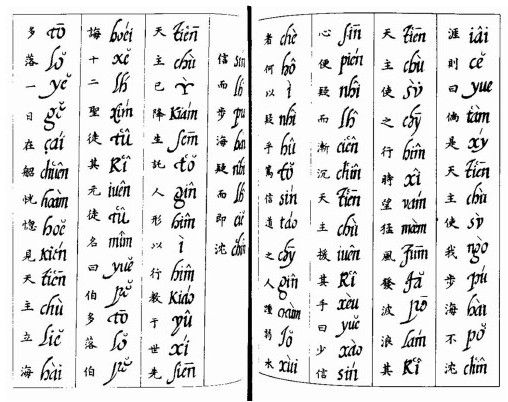 信 sín 而 lĥ 步 pú 海 hài 疑 nhî 而 lĥ 即 ciě 沉 chîn
天 tiēn 主 chù 已 ỳ 降 kiám 生 sēm 託 tǒ 人 gîn 形 hîm 以 ì 行 hîm 教 kiáo 于 yû 世 xí 先 siēn
誨 hoéi 十 xě 二 lh́ 聖 xím 徒 tû 其 kî 元 iuên 徒 tû 名 mîm 曰 yuě 伯 pě 多 tō 落 lǒ 伯 pě
多 tō 落 lǒ 一 yě 日 gě 在 çái 船 chuên 恍 hoàm 惚 hoě 見 kién 天 tiēn 主 chù 立 liě 海 hài
涯 iâi 則 cě 曰 yuě 倘 tàm 是 xý 天 tiēn 主 chù 使 sù 我 ngò 步 pú 海 hài 不 pǒ 沉 chîn
天 tiēn 主 chù 使 sù 之 chȳ 行 hîm 時 xî 望 vám 猛 màm 風 fūm 發 fǎ 波 pō 浪 lám 其 kî
心 sīn 便 pién 疑 nhî 而 lĥ 漸 cién 沉 chîn 天 tiēn 主 chù 援 iuên 其 kî 手 xèu 曰 yuě 少 xào 信 sín
者 chè 何 hô 以 ì 疑 nhî 乎 hû 篤 tǒ 信 sín 道 táo 之 chȳ 人 gîn 弱 jǒ 水 xùi